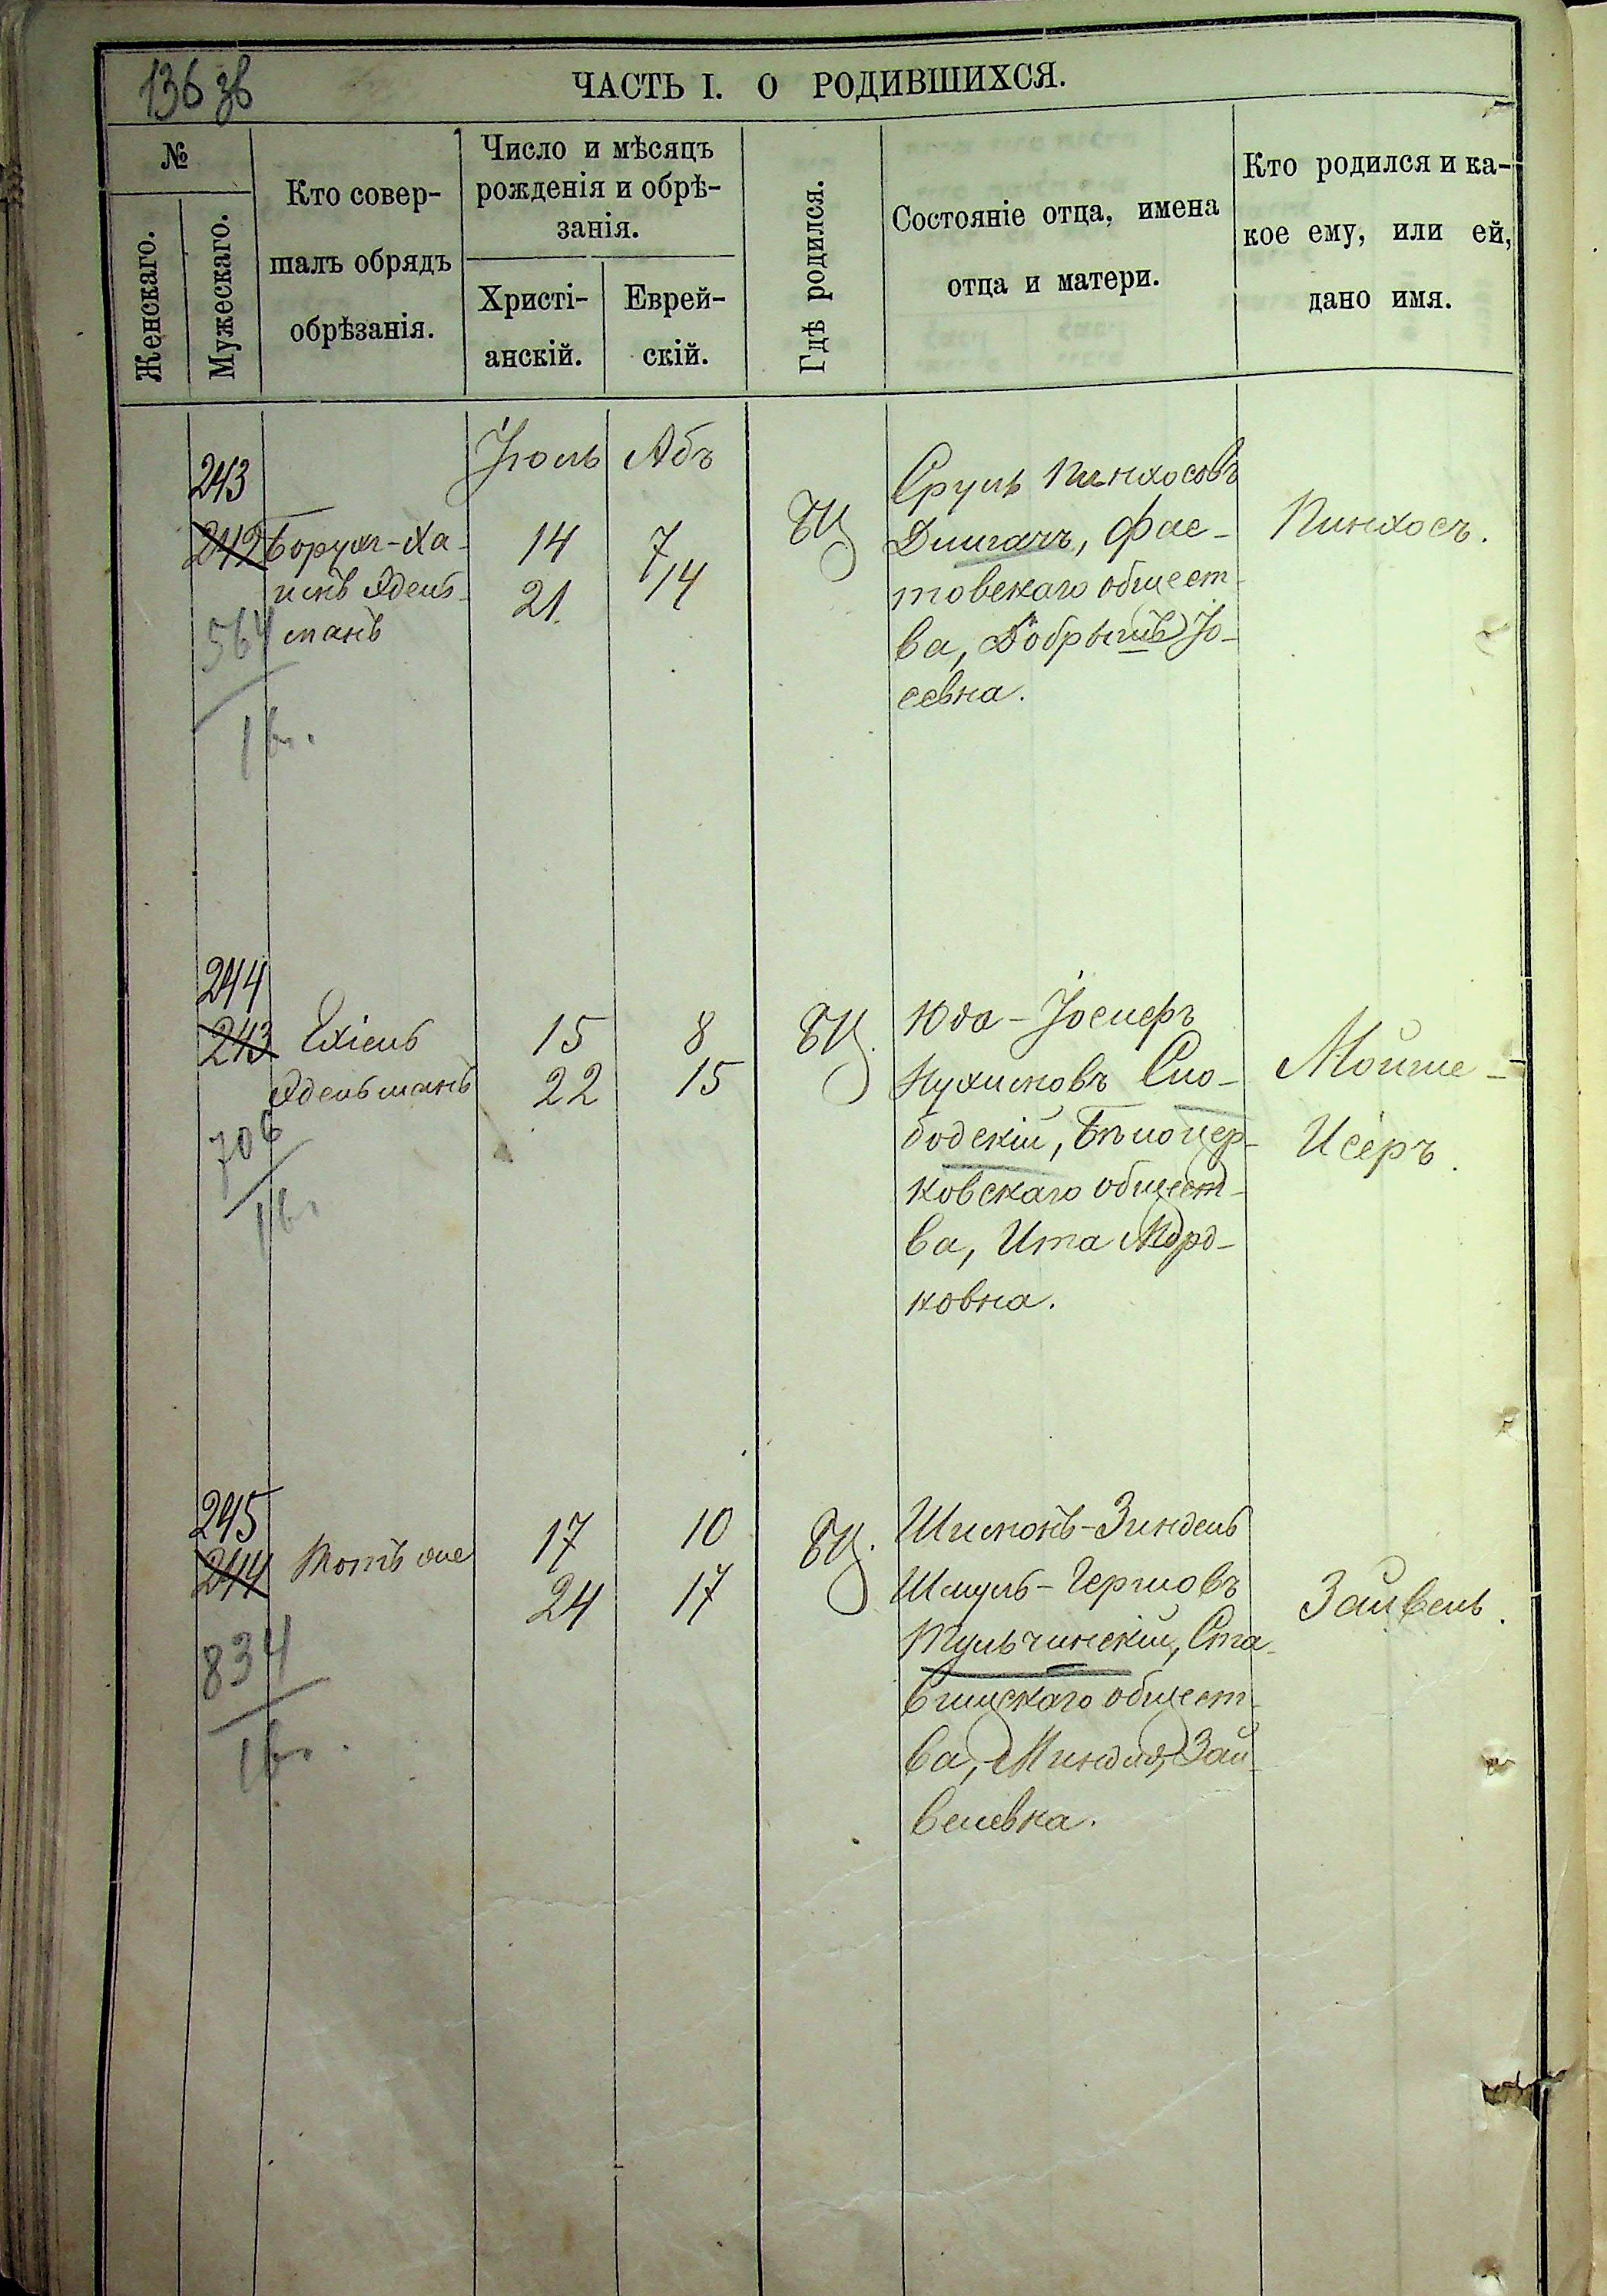 136 зв
ЧАСТЬ I. О РОДИВШИХСЯ.
№
Женскаго.
Мужескаго.
Кто совер-
шалъ обрядъ
обрѣзанія.
Число и мѣсяцъ
рожденія и обрѣ-
занія.
Христі-
анскій.
Еврей-
скій.
Гдѣ родился.
Состояніе отца, имена
отца и матери.
Кто родился и ка-
кое ему, или ей,
дано имя.
Іюль
Абъ
243
242
564
1
Борухъ-Ха-
имъ Эдель-
манъ
14
21
7
14
БЦ
Сруль Пинхосовъ
Длигачъ, Фас-
товскаго общест-
ва, Добрышъ Іо-
севна.
Пинхосъ.
244
243
706
1
Ехіель
Эдельманъ
15
22
8
15
БЦ.
Юда-Іосифъ
Нухимовъ Сло-
бодскій, Бѣлоцер-
ковскаго общест-
ва, Ита Морд-
ковна.
Мойше-
Исеръ.
245
244
834
1
Тотъ же
17
24
10
17
БЦ.
Шимонъ-Зиндель
Шмуль-Гершовъ
Тульчинскій, Ста-
вищскаго общест-
ва, Миндля Зай-
велевна.
Зайвель.